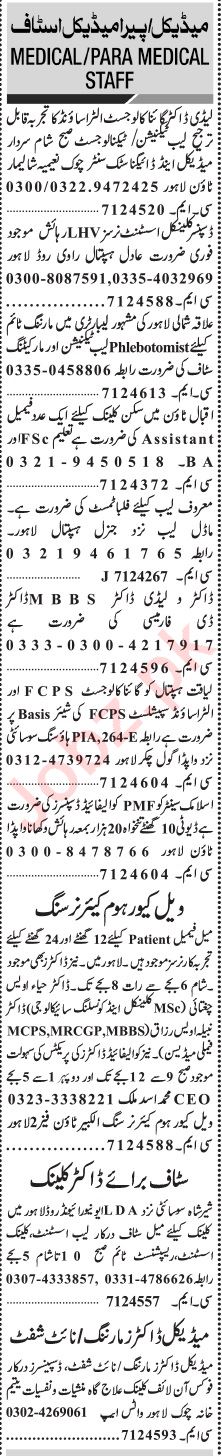 میڈیکل/پیرامیڈیکل اسٹاف
MEDICAL/PARA MEDICAL
STAFF
لیڈی ڈاکٹر گائناکالوجسٹ الٹراساؤنڈ کا تجربہ قابل
ترجیح لیب ٹیکنیشن/ ٹیکنالوجسٹ صبح شام سردار
میڈیکل اینڈ ڈائیگناسٹک سنٹر چوک نعیمیہ شالیمار
ٹاؤن لاہور 0300/0322.9472425
سی۔ایم۔7124520
ڈسپنسر کلینکل اسسٹنٹ نرسز LHV رہائش موجود
فوری ضرورت عادل ہسپتال راوی روڈ لاہور
0300-8087591,0335-4032969
سی۔ایم۔7124588
علاقہ شمالی لاہور کی مشہور لیبارٹری میں مارننگ ٹائم
کیلئے Phlebotomist لیب ٹیکنیشن اور مارکیٹنگ
سٹاف کی ضرورت رابطہ 0335-0458806
سی۔ایم۔7124613
اقبال ٹاؤن میں سکن کلینک کیلئے ایک عدد فیمیل
Assistant کی ضرورت ہے تعلیم FSc اور
BA۔ 0321-9450518
سی۔ایم۔7124372
معروف لیب کیلئے فلباٹمسٹ کی ضرورت ہے۔
ماڈل لیب نزد جنرل ہسپتال لاہور۔
رابطہ 03219461765
سی۔ایم۔ J 7124267
ڈاکٹر و لیڈی ڈاکٹر MBBS ڈاکٹر
ڈی فارمیسی کی ضرورت ہے
0333-0300-4217917
سی۔ایم۔7124596
لیاقت ہسپتال کو گائناکالوجسٹ FCPS اور
الٹراساؤنڈ سپیشلسٹ FCPS کی شیئر Basis پر
ضرورت ہے رابطہ PIA,264-E ہاؤسنگ سوسائٹی
نزد واپڈا گول چکر لاہور 0312-4739724
سی۔ایم۔7124604
اسلامک سینٹر کو PMF کوالیفائیڈ ڈسپنسرز کی ضرورت
ہے ڈیوٹی 10 گھنٹے تنخواہ 20 ہزار بمعہ رہائش و کھانا واپڈا
ٹاؤن لاہور 0300-8478766
سی۔ایم۔7124604
ویل کیور ہوم کیئر نرسنگ
میل فیمیل Patient کیلئے 12 گھنٹے اور 24 گھنٹے کیلئے
تجربہ کار نرسز موجود ہیں۔ لاہور میں۔ نیز ڈاکٹرز بھی موجود
۔ شام 6 بجے سے رات 8 بجے تک۔ ڈاکٹر حیاء اویس
چغتائی (MSc کلینکل اینڈ کونسلنگ سائیکالوجی) ڈاکٹر
نبیلہ اویس رزاق (MCPS,MRCGP,MBBS
فیملی میڈیسن)۔ نیز کوالیفائیڈ ڈاکٹرز کی پریکٹس کی سہولت
موجود صبح 9 سے 12 بجے تک اور دوپہر 1 سے 5 بجے
CEO محمد اسد ملک 0323-3338221
ویل کیور ہوم کیئر نرسنگ الکبیر ٹاؤن فیز 2 لاہور
سی۔ایم۔7124588
سٹاف برائے ڈاکٹر کلینک
شیر شاہ سوسائٹی نزد LDA ایونیو رائیونڈ روڈ لاہور میں
کلینک کیلئے میل سٹاف درکار لیب اسسٹنٹ، کلینک
اسسٹنٹ، ریسپشنسٹ ٹائم صبح 10 تا شام 5 بجے
رابطہ 0331-4786626 ,0307-4333857
سی۔ایم۔7124557
میڈیکل ڈاکٹرز مارننگ/نائٹ شفٹ
میڈیکل ڈاکٹرز مارننگ/نائٹ شفٹ، ڈسپنسرز درکار
فوکس آن لائف کلینک علاج گاہ منشیات و نفسیات یتیم
خانہ چوک لاہور واٹس ایپ 0302-4269061
سی۔ایم۔7124593